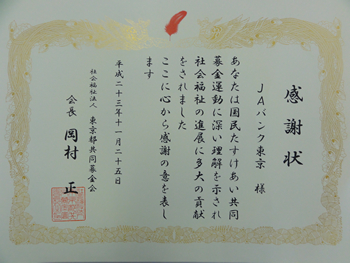 感謝状
JAバンク東京 様
あなたは国民たすけあい共同
募金運動に深い理解を示され
社会福祉の進展に多大の貢献
をされました
ここに心から感謝の意を表し
ます
平成二十三年十一月二十五日
社会福祉法人 東京都共同募金会
会長 岡村 正